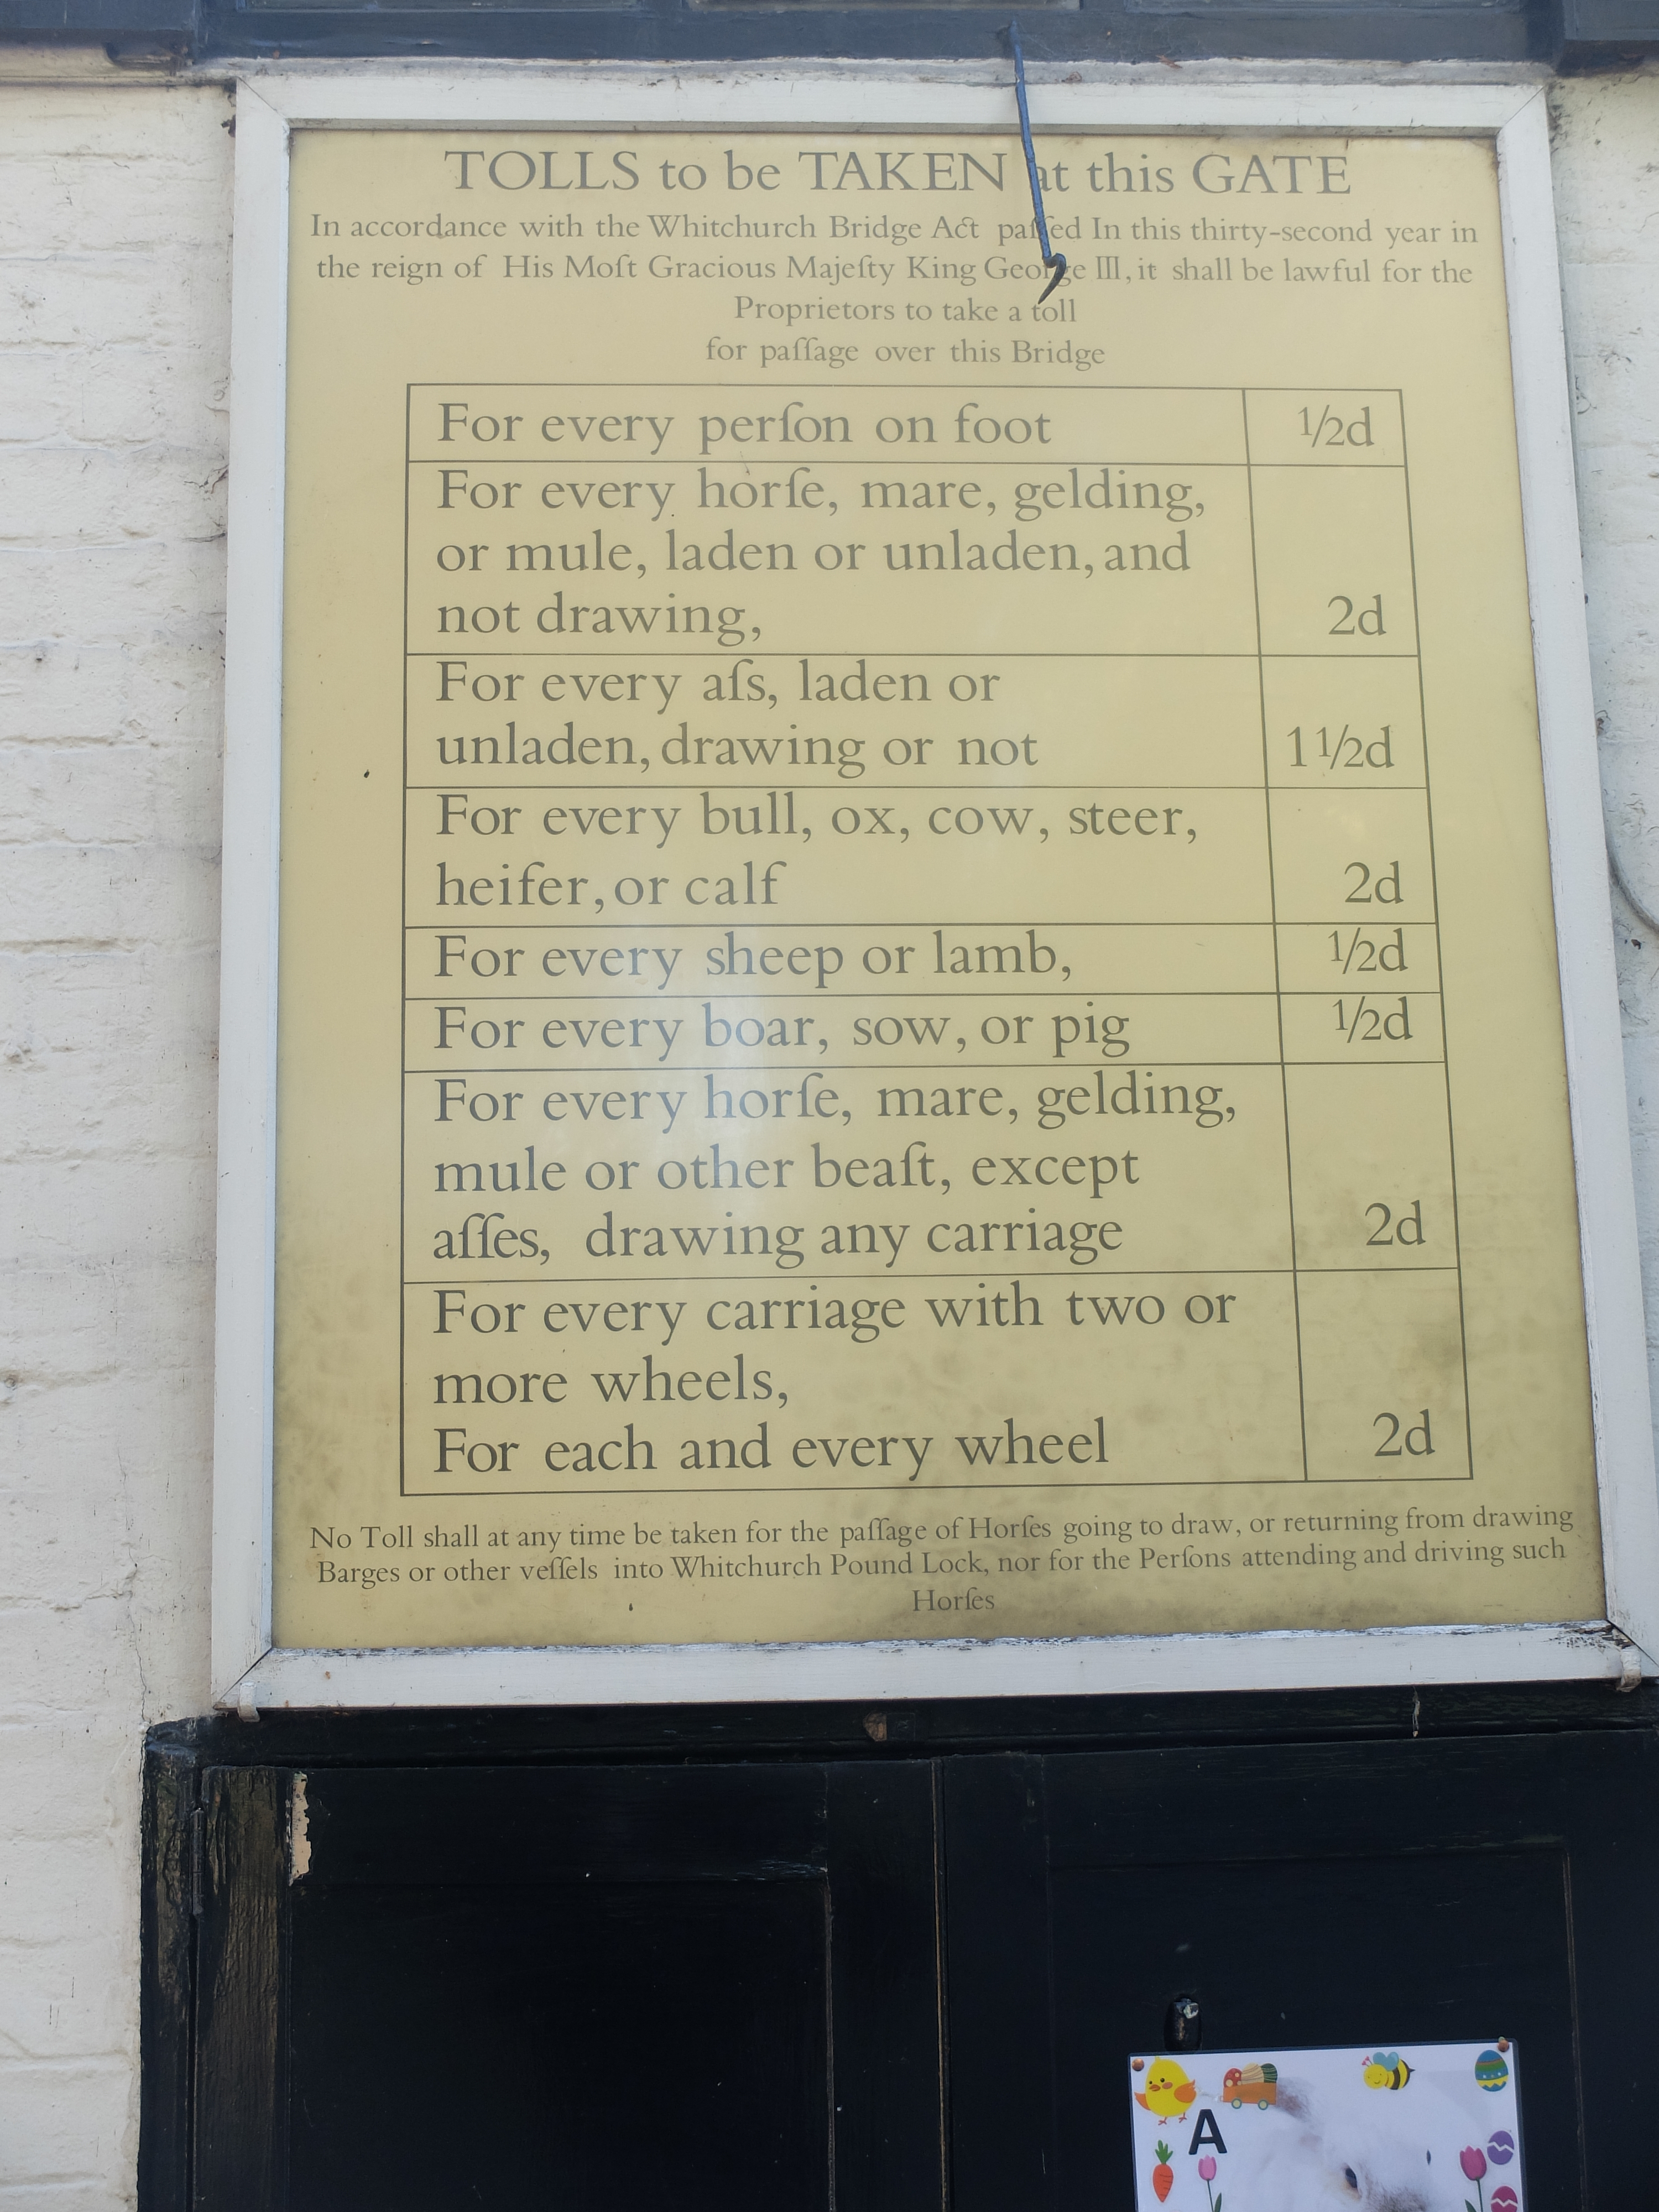 TOLLS to be TAKEN at this GATE
In accordance with the Whitchurch Bridge Act paſſed In this thirty-second year in
the reign of His Moſt Gracious Majeſty King George III, it shall be lawful for the
Proprietors to take a toll
for paſſage over this Bridge
For every perſon on foot ½d
For every horſe, mare, gelding,
or mule, laden or unladen, and
not drawing, 2d
For every aſs, laden or
unladen, drawing or not 1½d
For every bull, ox, cow, steer,
heifer, or calf 2d
For every sheep or lamb, ½d
For every boar, sow, or pig ½d
For every horſe, mare, gelding,
mule or other beaſt, except
aſſes, drawing any carriage 2d
For every carriage with two or
more wheels,
For each and every wheel 2d
No Toll shall at any time be taken for the paſſage of Horſes going to draw, or returning from drawing
Barges or other veſſels into Whitchurch Pound Lock, nor for the Perſons attending and driving such
Horſes
A